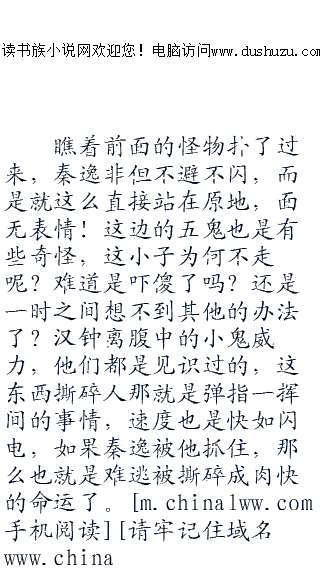 读书族小说网欢迎您！电脑访问www.dushuzu.com
瞧着前面的怪物扑了过
来，秦逸非但不避不闪，而
是就这么直接站在原地，面
无表情！这边的五鬼也是有
些奇怪，这小子为何不走
呢？难道是吓傻了吗？还是
一时之间想不到其他的办法
了？汉钟离腹中的小鬼威
力，他们都是见识过的，这
东西撕碎人那就是弹指一挥
间的事情，速度也是快如闪
电，如果秦逸被他抓住，那
么也就是难逃被撕碎成肉快
的命运了。[m.china1ww.com
手机阅读][请牢记住域名
www.china